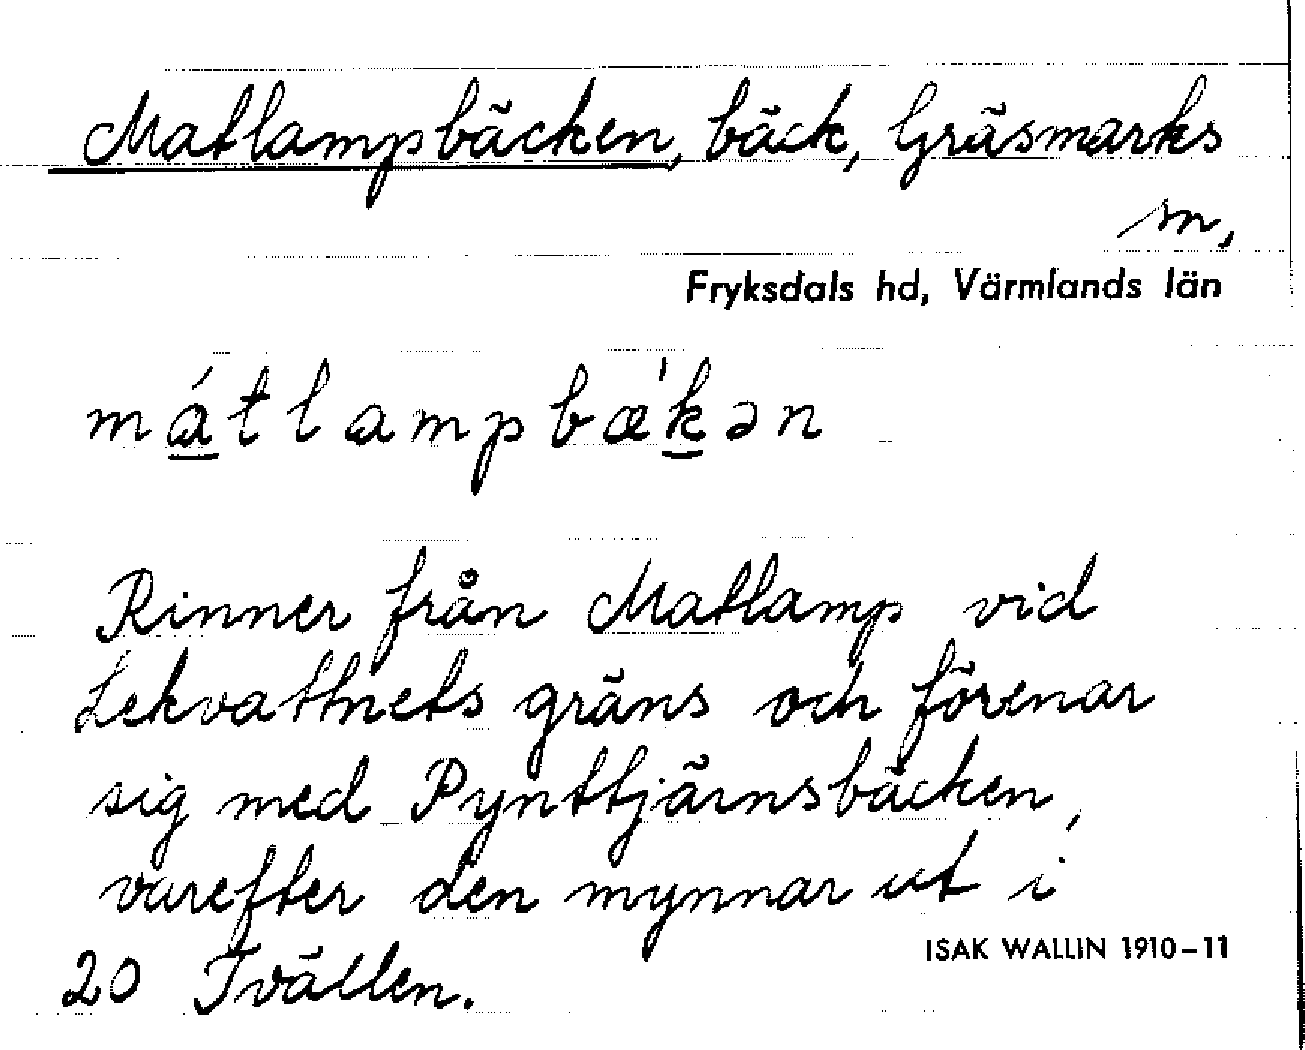 Matlampbäcken, bäck, Gräsmarks
sn,
Fryksdals hd, Värmlands län
mátlampbæ̍kən
Rinner från Matlamp vid
Lekvattnets gräns och förenar
sig med Pynttjärnsbäcken,
varefter den mynnar ut i
20 Tvällen.
ISAK WALLIN 1910–11